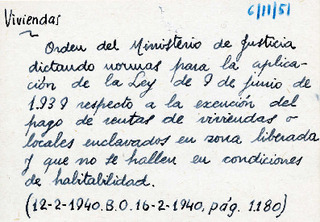 6/11/51
Viviendas
Orden del Ministerio de Justicia
dictando normas para la aplica-
ción de la Ley de 9 de junio de
1.939 respecto a la exención del
pago de rentas de viviendas o
locales enclavados en zona liberada
y que no se hallen en condiciones
de habitabilidad.
(12-2-1940. B.O. 16-2-1940, pág. 1.180)